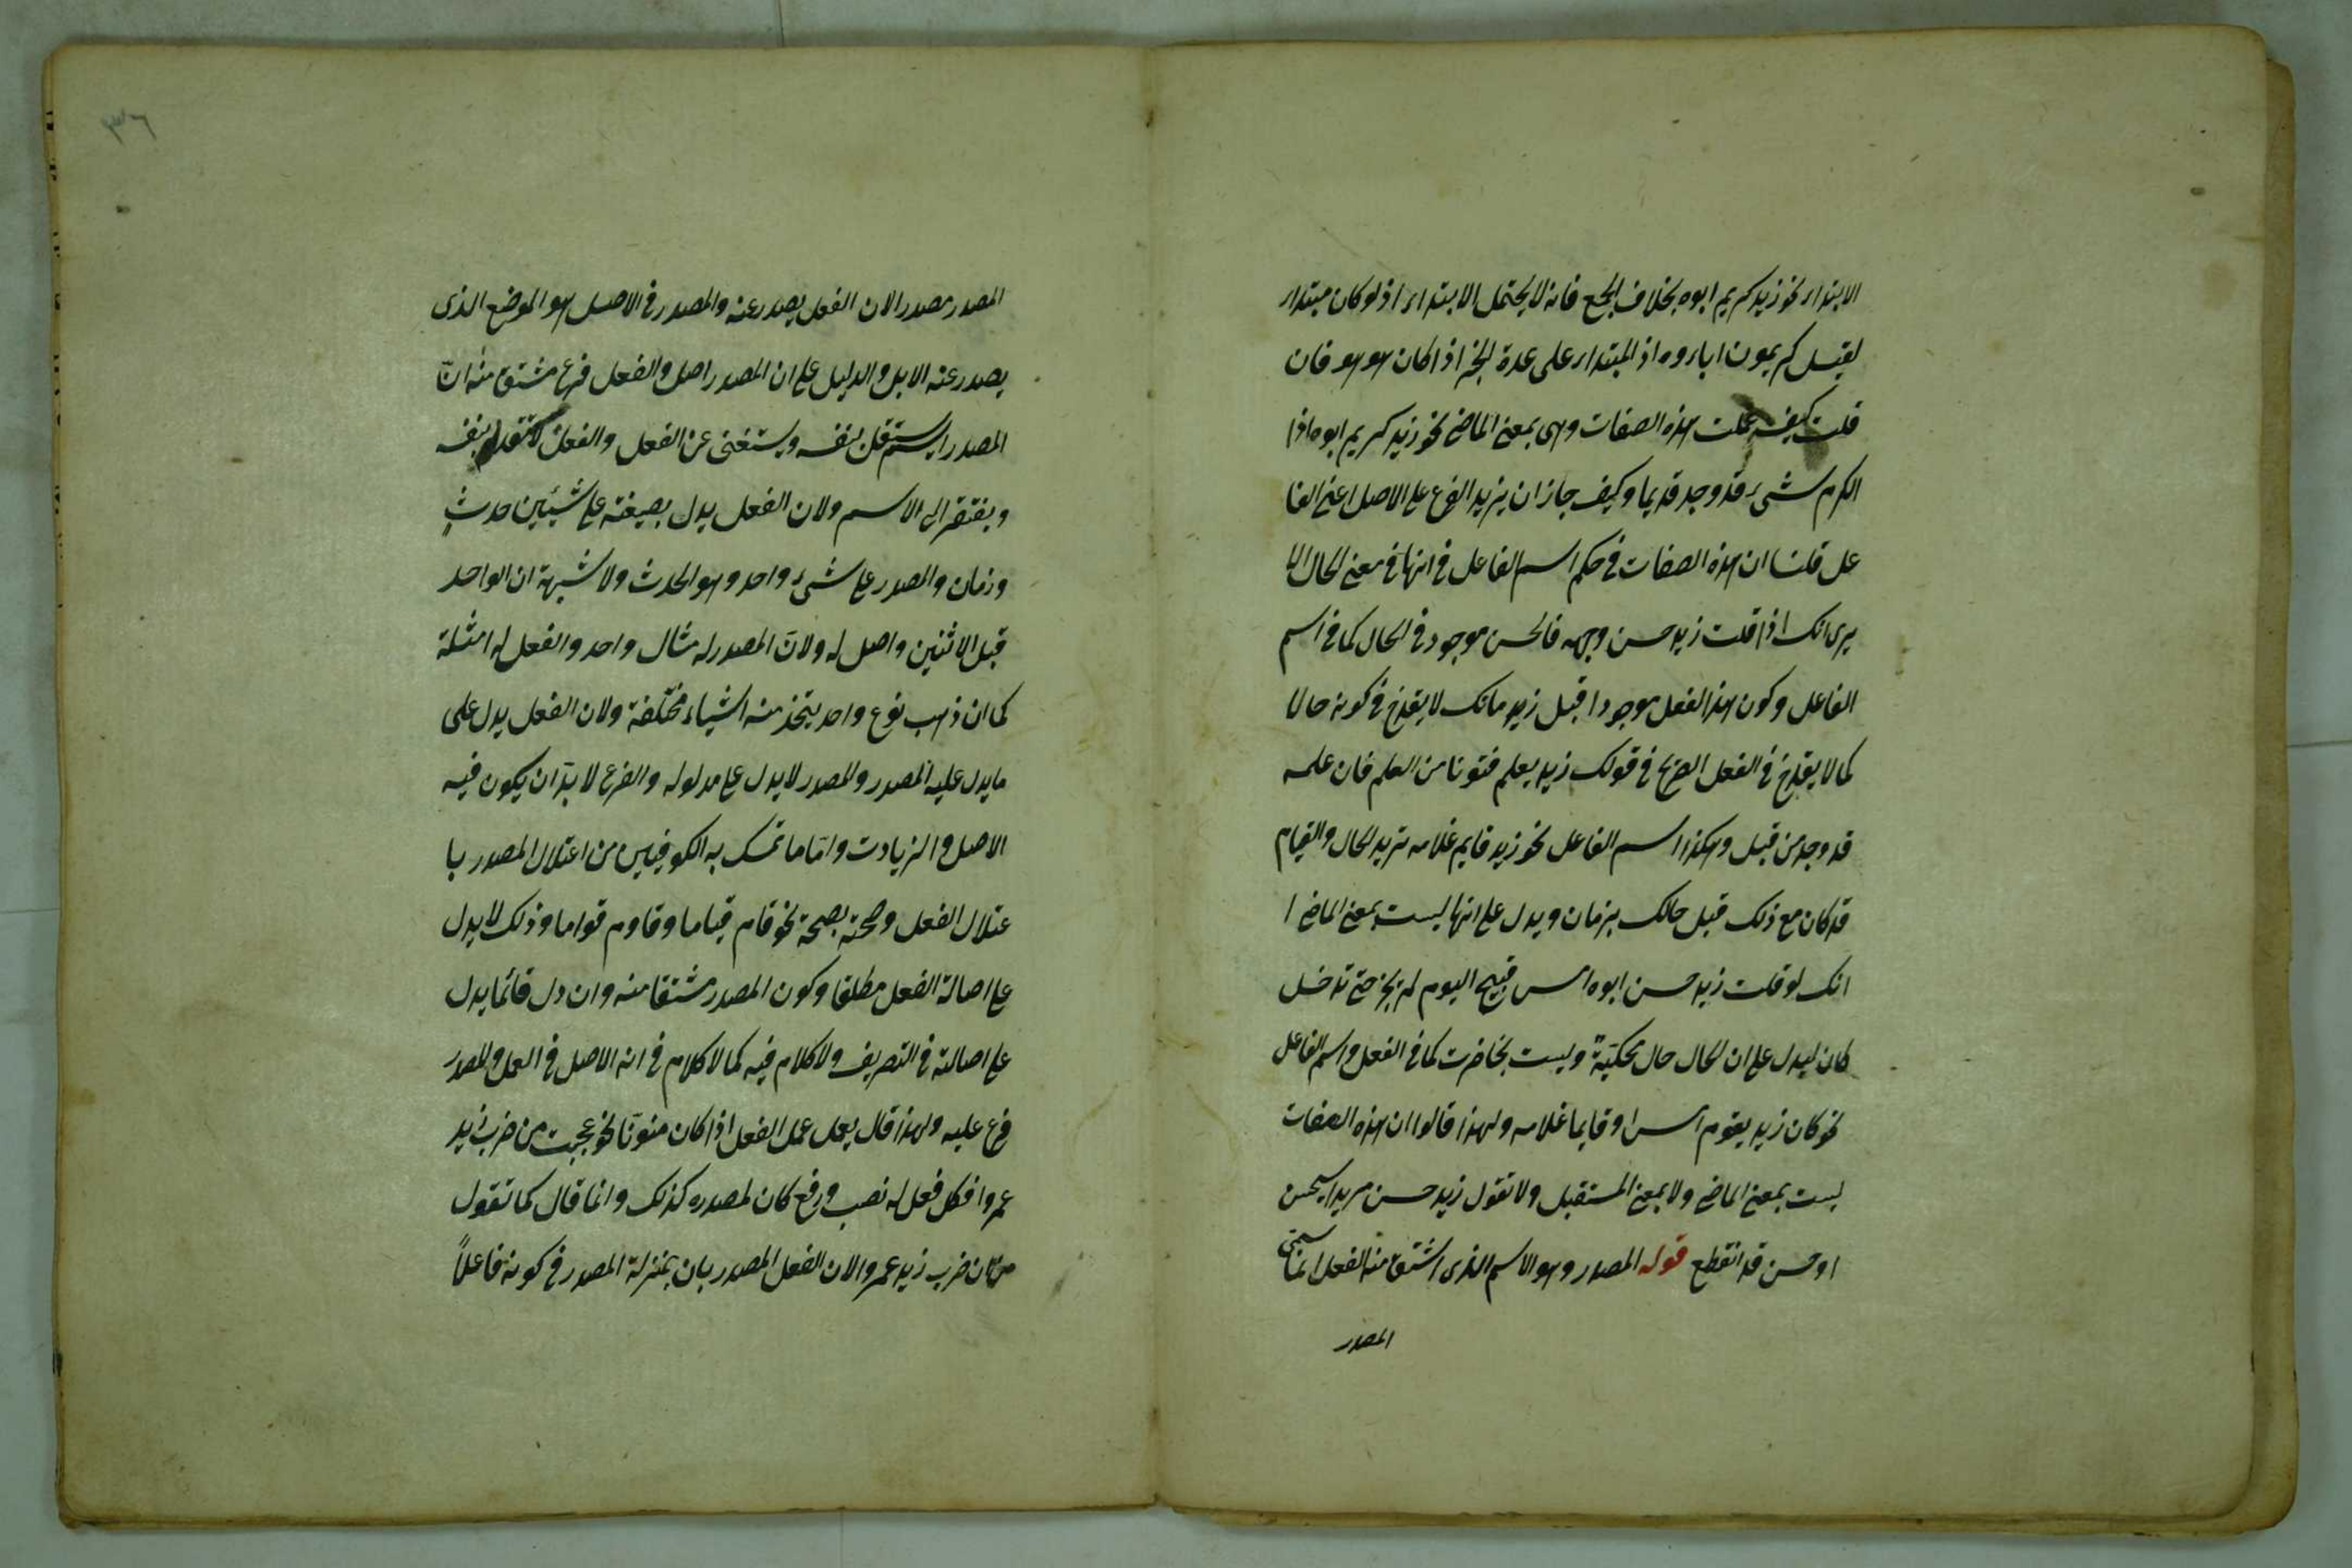 الابتداء نحو زيد كريم ابوه بخلاف الجمع فانه لا يحتمل الابتداء اذ لو كان مبتداء
لقيل كريمون اباءوه اذ المبتداء على عدة الخبر اذا كان هو هو فان
قلت كيف عملت هذه الصفات وهى بمعنى الماضى نحو زيد كريم ابوه اذا
الكرم شىء قد وجد قديما وكيف جاز ان يزيد الفرع على الاصل اعنى الفا
عل قلنا ان هذه الصفات فى حكم اسم الفاعل فى انها فى معنى الحال الا
يرى انك اذا قلت زيد حسن وجهه فالحسن موجود فى الحال كما فى اسم
الفاعل وكون هذا الفعل موجودا قبل زيد مانك لا يقدح فى كونه حالا
كما لا يقدح فى الفعل الصريح فى قولك زيد يعلم فنونا من العلم فان علمه
قد وجد من قبل وهكذا اسم الفاعل نحو زيد قايم غلامه تريد الحال والقيام
قد كان مع ذلك قبل حالك بزمان ويدل على انها ليست بمعنى الماضى ا
انك لو قلت زيد حسن ابوه امس قبيح اليوم لم يجز حتى تدخل
كان ليدل على ان الحال حال محكيّة وليست بحاضرت كما فى الفعل واسم الفاعل
نحو كان زيد يقوم امس او قايما غلامه ولهذا قالوا ان هذه الصفات
ليست بمعنى الماضى ولا بمعنى المستقبل ولا تقول زيد حسن مريدا سيحسن
او حسن قد انقطع قوله المصدر وهو الاسم الذى اشتق منه الفعل انما سمى
المصدر
٣٦
المصدر مصدرا لان الفعل يصدر عنه والمصدر فى الاصل هو الموضع الذى
يصدر عنه الابل والدليل على ان المصدر اصل والفعل فرع مشتق منه انّ
المصدر اسم يستقل بنفسه ويستغنى عن الفعل والفعل لا بنفسه
ويفتقر الى الاسم ولان الفعل يدل بصيغته على شيئين حدثٍ
وزمان والمصدر على شىء واحد وهو الحدث ولا شبهة ان الواحد
قبل الاثنين واصل له ولانّ المصدر له مثال واحد والفعل له امثلة
كما ان ذهب نوع واحد يتخذ منه اشياء مختلفة ولان الفعل يدل على
ما يدل عليه المصدر والمصدر لا يدل على مدلوله والفرع لا بدّ ان يكون فيه
الاصل والزيادت وامّا ما تمسك به الكوفيين من اعتلال المصدر با
عتلال الفعل وصحته بصحته نحو قام قياما وقاوم قواما وذلك لا يدل
على اصالة الفعل مطلقا وكون المصدر مشتقا منه وان دل فانما يدل
على اصالته فى التصريف ولا كلام فيه كما لا كلام فى انه الاصل فى العمل والمصدر
فرع عليه ولهذا قال يعمل عمل الفعل اذا كان منونّا نحو عجبت من ضرب زيد
عمروا فكل فعل له نصب ورفع كان لمصدره كذلك وانما قال كما تقول
من ان ضرب زيد عمروا لان الفعل المصدر بان بمنزلة المصدر فى كونه فاعلاً